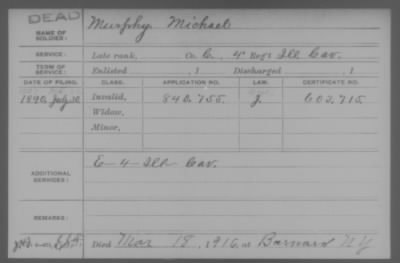 DEAD
NAME OF SOLDIER: Murphy Michael
SERVICE: Late rank, Co. C, 4 Reg't Ill Cav.
TERM OF SERVICE: Enlisted , 1 Discharged , 1
DATE OF FILING. CLASS. APPLICATION NO. LAW. CERTIFICATE NO.
1890 July 30 Invalid, 840.755. J. 602.715.
Widow,
Minor,
ADDITIONAL SERVICES: E-4-Ill Cav.
REMARKS:
Died Mar 18, 1916, at Barnard N Y